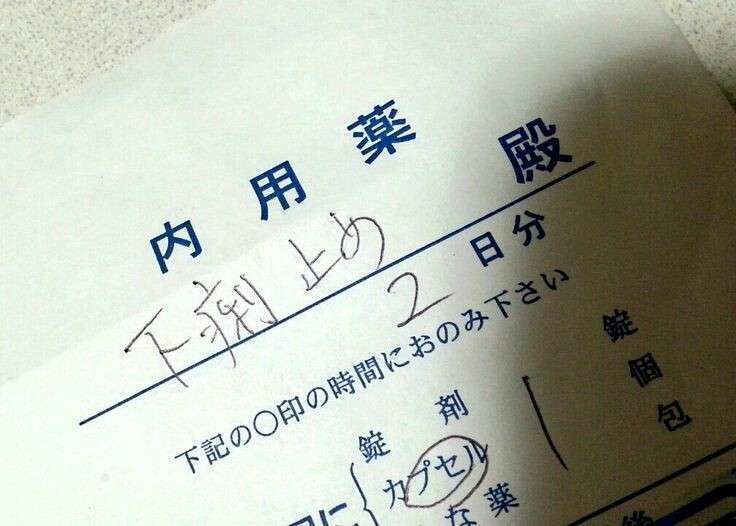 内用薬
下痢止め 殿
2 日分
下記の〇印の時間におのみ下さい
錠剤 錠
カプセル 1 個
な薬 包